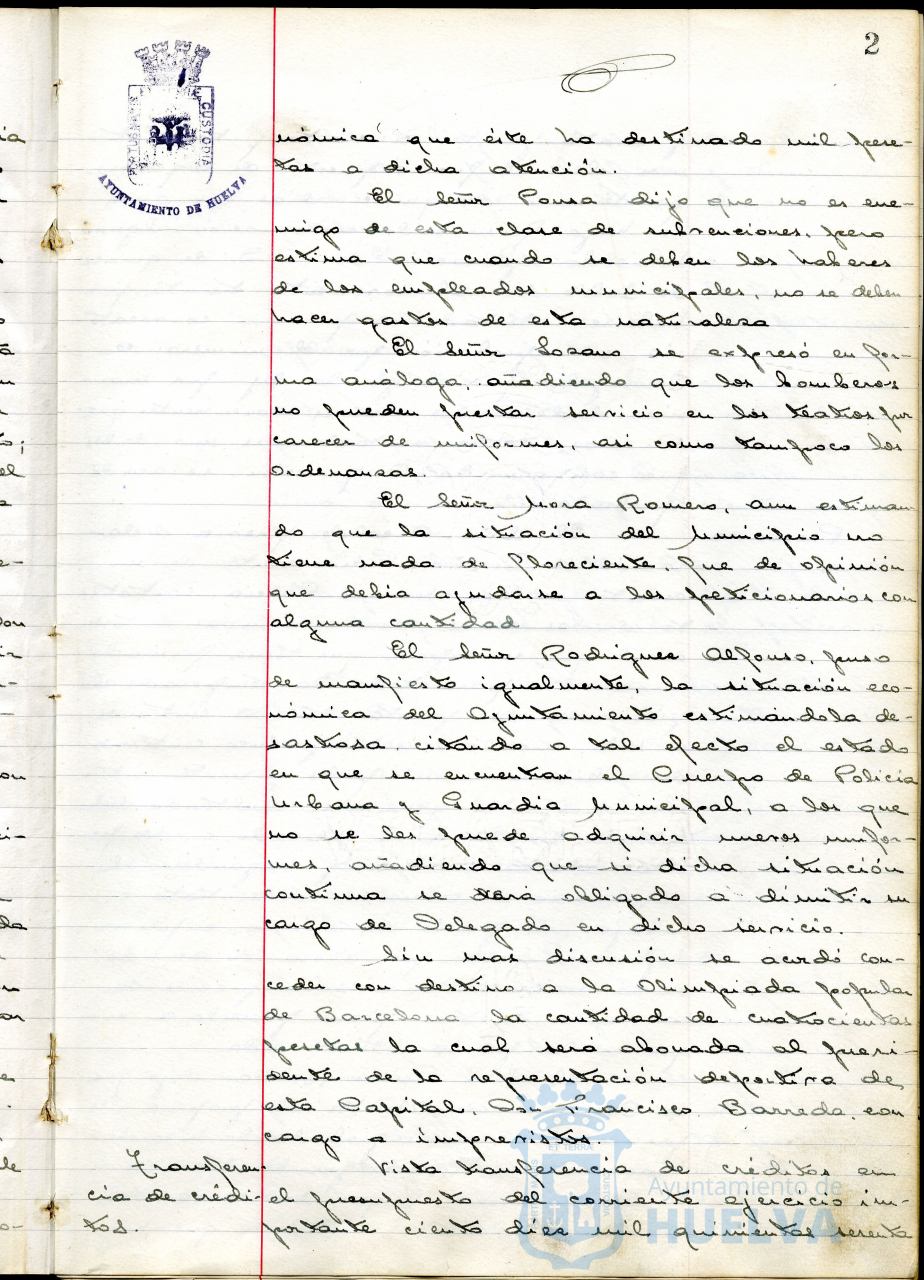 2
PORTUS MARIS ET TERRAE CUSTODIA
AYUNTAMIENTO DE HUELVA
nómica que éste ha destinado mil pese-
tas a dicha atención.
El Señor Ponsa dijo que no es ene-
migo de esta clase de subvenciones, pero
estima que cuando se deben los haberes
de los empleados municipales, no se deben
hacer gastos de esta naturaleza
El Señor Lozano se expresó en for-
ma análoga, añadiendo que los bomberos
no pueden prestar servicio en los teatros por
carecer de uniformes, asi como tampoco los
ordenanzas.
El Señor Mora Romero, aun estiman
do que la situación del Municipio no
tiene nada de floreciente, fue de opinión
que debia ayudarse a los peticionarios con
alguna cantidad
El Señor Rodriguez Alfonso, puso
de manifiesto igualmente, la situación eco-
nómica del Ayuntamiento estimándola de-
sastrosa, citando a tal efecto el estado
en que se encuentran el Cuerpo de Policia
Urbana y Guardia Municipal, a los que
no se les puede adquirir nuevos unifor-
mes, añadiendo que si dicha situación
continua se verá obligado a dimitir su
cargo de Delegado en dicho servicio.
Sin mas discusión se acordó con-
ceder con destino a la Olimpiada popular
de Barcelona la cantidad de cuatrocientas
pesetas la cual será abonada al presi-
dente de la representación deportiva de
esta Capital, Don Francisco Barreda, con
cargo a imprevistos.
Transferen-
cia de crédi-
tos.
Vista transferencia de créditos en
el presupuesto del corriente ejercicio im-
portante ciento diez mil quinientas setenta
Ayuntamiento de
HUELVA